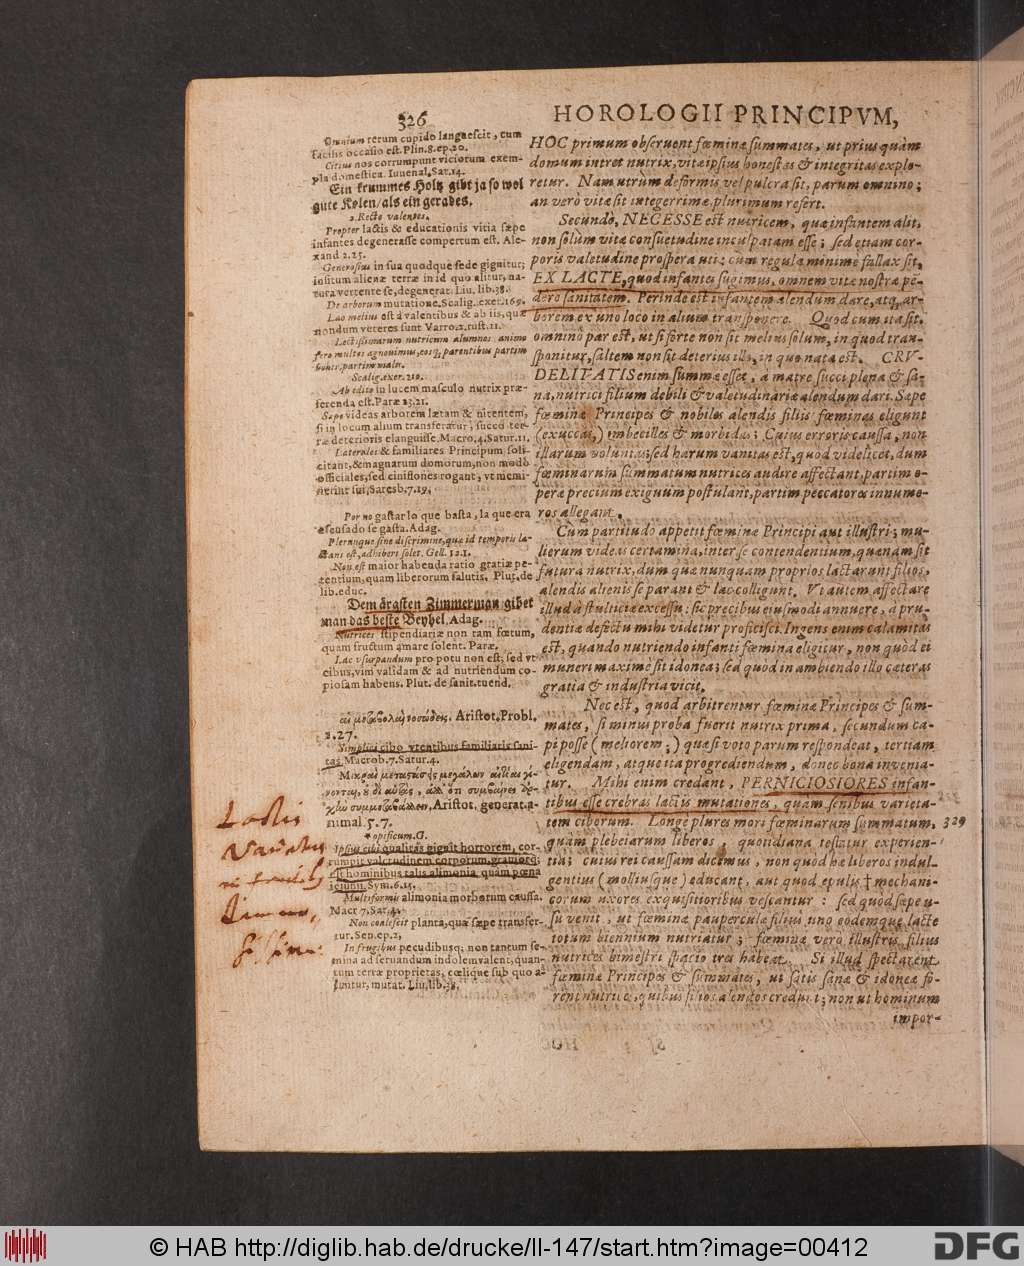 326
HOROLOGII PRINCIPVM,
Omnium rerum cupido languescit, cum
facilis occasio est. Plin. 8. ep. 20.
Citius nos corrumpunt viciorum exem-
pla domestica. Iuuenal. Sat. 14.
Ein krummes Holtz gibt ja so wol
gute Kolen/als ein gerades.
2. Recte valentes.
Propter lactis & educationis vitia sæpe
infantes degenerasse compertum est. Ale-
xand 2.25.
Generosius in sua quodque sede gignitur;
insitum alienæ terræ in id quo alitur, na-
tura vertente se, degenerat. Liu. lib. 38.
De arborum mutatione. Scalig. exer. 169.
Lac melius est à valentibus & ab iis, quæ
nondum veteres sunt Varro. 2. rust. 11.
Lectissimarum nutricum alumnos animo
fero multos agnouimus, eosq; parentibus partim
bonis, partim malis.
Scalig. exer. 210.
Ab edito in lucem masculo nutrix præ-
ferenda est. Paræ 23.21.
Sæpe videas arborem lætam & nitentem,
si in locum alium transferatur, succo ter-
ræ deterioris elanguisse. Macro. 4. Satur. 11.
Laterales & familiares Principum soli-
citant, & magnarum domorum, non modò
officiales, sed cinistones rogant, vt memi-
nerint sui, Saresb. 7.19.
Por no gastar lo que basta, la que era
escusado se gasta. Adag.
Plerunque sine discrimine, quæ id temporis la-
ctans est, adhiberi solet. Gell. 12.1.
Non est maior habenda ratio gratiæ pe-
tentium, quam liberorum salutis. Plut. de
lib. educ.
Dem ärgsten Zimmerman gibet
man das beste Beyhel. Adag.
Nutrices stipendiariæ non tam fœtum,
quam fructum amare solent. Paræ.
Lac vsurpandum pro potu non est; sed vt
cibus, vim validam & ad nutriendum co-
piosam habens. Plut. de sanit. tuend.
Aristot. Probl.
2.27.
Simplici cibo vtentibus familiaris sani-
tas. Macrob. 7. Satur. 4.
Aristot. generat. a-
nimal. 5.7.
* opificum. G.
Ipsius cibi qualitas gignit horrorem, cor-
rumpit valetudinem corporum, grauiorq;
est hominibus talis alimonia, quam pœna
ieiunii. Sym. 6.15.
Multiformis alimonia morborum caussa.
Macr 7. Sat. 4.
Non coalescit planta, quæ sæpe transfer-
tur. Sen. ep. 2,
In frugibus pecudibusq; non tantum se-
mina ad seruandum indolem valent, quan-
tum terræ proprietas, cœlique sub quo a-
luntur, mutat. Liu. lib. 38.
HOC primum obseruent fœminæ summates, ut prius quàm
domum intret nutrix, vitæ ipsius honestas & integritas explo-
retur. Nam utrùm deformis vel pulcra sit, parum omnino;
an verò vitæ sit integerrimæ, plurimum refert.
Secundò, NECESSE est nutricem, quæ infantem alit,
non solùm vitæ consuetudine inculpatam esse; sed etiam cor-
poris valetudine prospera uti: cùm regula minime fallax sit,
EX LACTE, quod infantes sugimus, omnem vitæ nostræ pe-
dero sanitatem. Perinde est infantem alendum dare, atq; ar-
borem ex uno loco in alium transponere. Quod cum ita sit,
omnino par est, ut si forte non sit melius solum, in quod tran-
sponitur, saltem non sit deterius illo, in quo nata est. CRV-
DELITATIS enim summæ esset, à matre succi plena & sa-
na, nutrici filium debili & valetudinariæ alendum dari. Sæpe
fœminæ Principes & nobiles alendis filiis fœminas eligunt
(exuccas,) imbecilles & morbidas; Cuius erroris caussa, non
illarum voluntas; sed harum vanitas est, quòd videlicet, dum
fœminarum summatum nutrices audire affectant, partim o-
peræ precium exiguum postulant, partim peccatores innume-
ros allegant.
Cùm partitudo appetit fœminæ Principi aut illustri; mu-
lierum videas certamina, inter se contendentium, quænam sit
futura nutrix, dum quæ nunquam proprios lactarunt filios,
alendis alienis se parant & lac colligunt. Vt autem affectare
illud à stultitiæ excessu: sic precibus eiusmodi annuere, à pru-
dentiæ defectu mihi videtur proficisci. Ingens enim calamitas
est, quando nutriendo infanti fœmina eligitur, non quòd ei
muneri maximè sit idonea; sed quòd in ambiendo illo cæteras
gratia & industria vicit.
Nec est, quod arbitrentur fœminæ Principes & sum-
mates, si minus proba fuerit nutrix prima, secundum ca-
pi posse (meliorem;) quæ si voto parum respondeat, tertiam
eligendam, atque ita progrediendum, donec bona invenia-
tur. Mihi enim credant, PERNICIOSIORES infan-
tibus esse crebras lactis mutationes, quàm senibus varieta-
tem ciborum. Longè plures mori fœminarum summatum, 329
quàm plebeiarum liberos, quotidiana testatur experien-
tia; cuius rei caussam dicimus, non quòd hæ liberos indul-
gentius (molliusque) educant, aut quod epulis † mechani-
corum uxores exquisitioribus vescantur: sed quòd sæpe u-
su venit, ut fœminæ pauperculæ filius uno eodemque lacte
totum biennium nutriatur; fœminæ verò illustris filius
nutrices bimestri spacio tres habeat. Si illud spectarent
fœminæ Principes & summates, ut satis sanæ & idoneæ fo-
rent nutrices, quibus filios alendos credunt; non ut hominum
impor-
Lactis
© HAB http://diglib.hab.de/drucke/ll-147/start.htm?image=00412
DFG